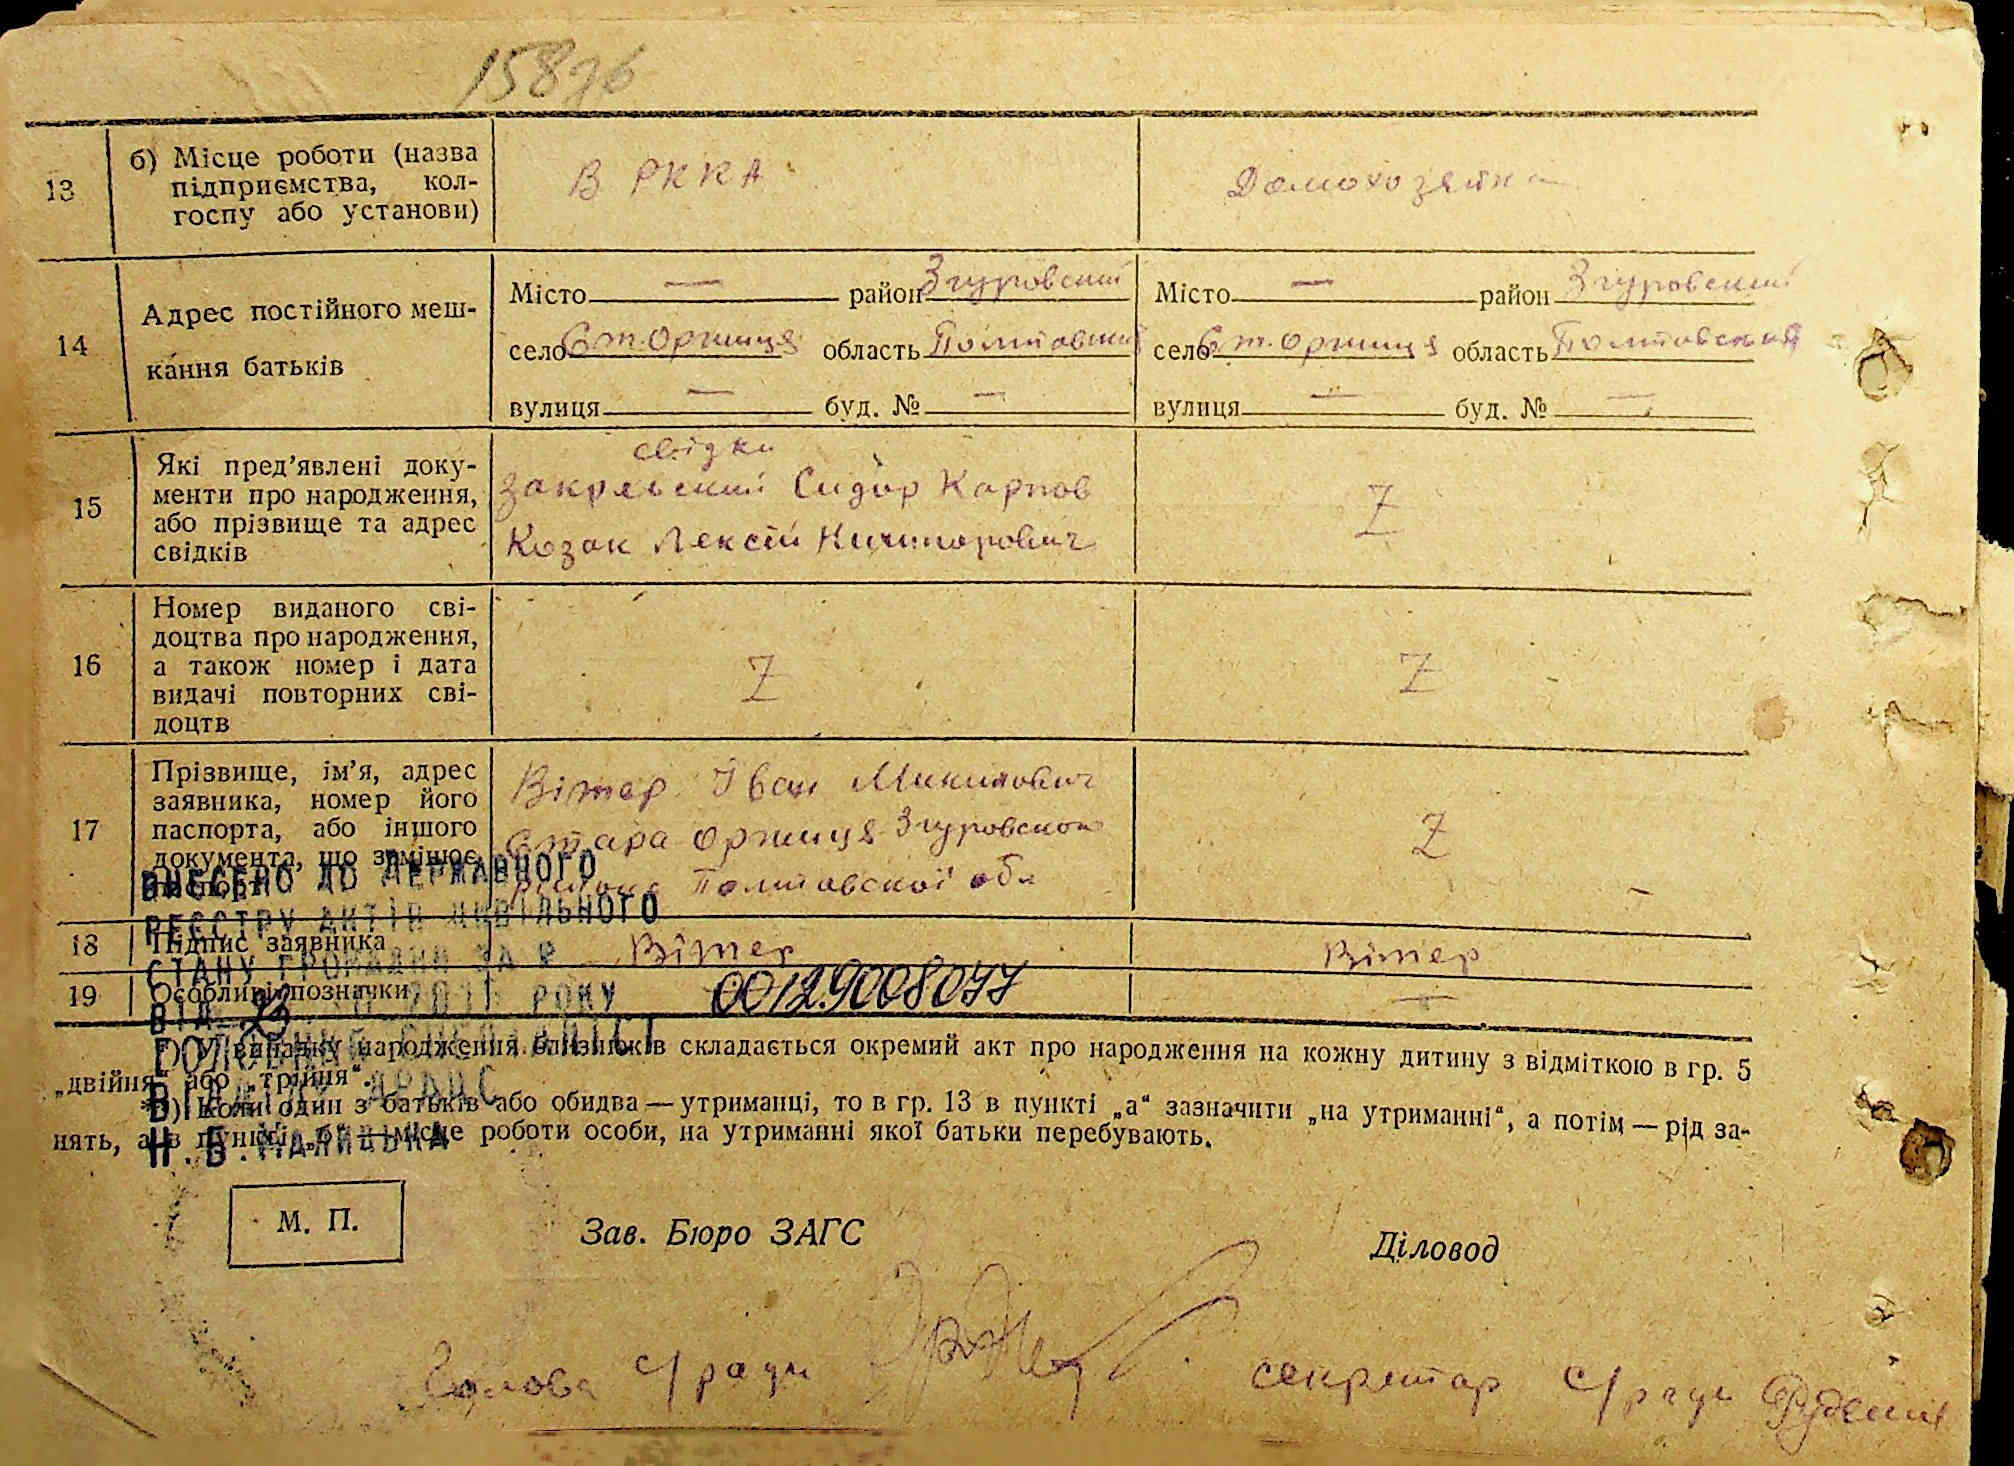 158
13
б) Місце роботи (назва
підприємства, кол-
госпу або установи)
В РККА
Домохозяйка
14
Адрес постійного меш-
кання батьків
Місто — район Згуровский
село Ст. Оржиця область Полтавский
вулиця — буд. № —
Місто — район Згуровский
село Ст. Оржиця область Полтавская
вулиця — буд. № —
15
Які пред’явлені доку-
менти про народження,
або прізвище та адрес
свідків
свідки
Сидор Карпов
Козак Лексій Ничипорович
Z
16
Номер виданого сві-
доцтва про народження,
а також номер і дата
видачі повторних сві-
доцтв
Z
Z
17
Прізвище, ім’я, адрес
заявника, номер його
паспорта, або іншого
документа, що замінює
Вітер Іван Микитович
Стара Оржиця Згуровского
району Полтавскої обл
Z
18
Підпис заявника
Вітер
Вітер
19
Особливі позначки
00129008077
—
ВНЕСЕНО ДО ДЕРЖАВНОГО
РЕЄСТРУ АКТІВ ЦИВІЛЬНОГО
СТАНУ ГРОМАДЯН ЗА №
ВІД 23 РОКУ
ГОЛОВНИЙ СПЕЦІАЛІСТ
ВІДДІЛУ ДРАЦС
Н.Б.
У випадку народження близнюків складається окремий акт про народження на кожну дитину з відміткою в гр. 5
„двійня“ або „трійня“.
Коли один з батьків або обидва — утриманці, то в гр. 13 в пункті „а“ зазначити „на утриманні“, а потім — рід за-
нять, а в пункті „б“ — місце роботи особи, на утриманні якої батьки перебувають.
М. П.
Зав. Бюро ЗАГС
Діловод
Голова с/ради
секретар с/ради